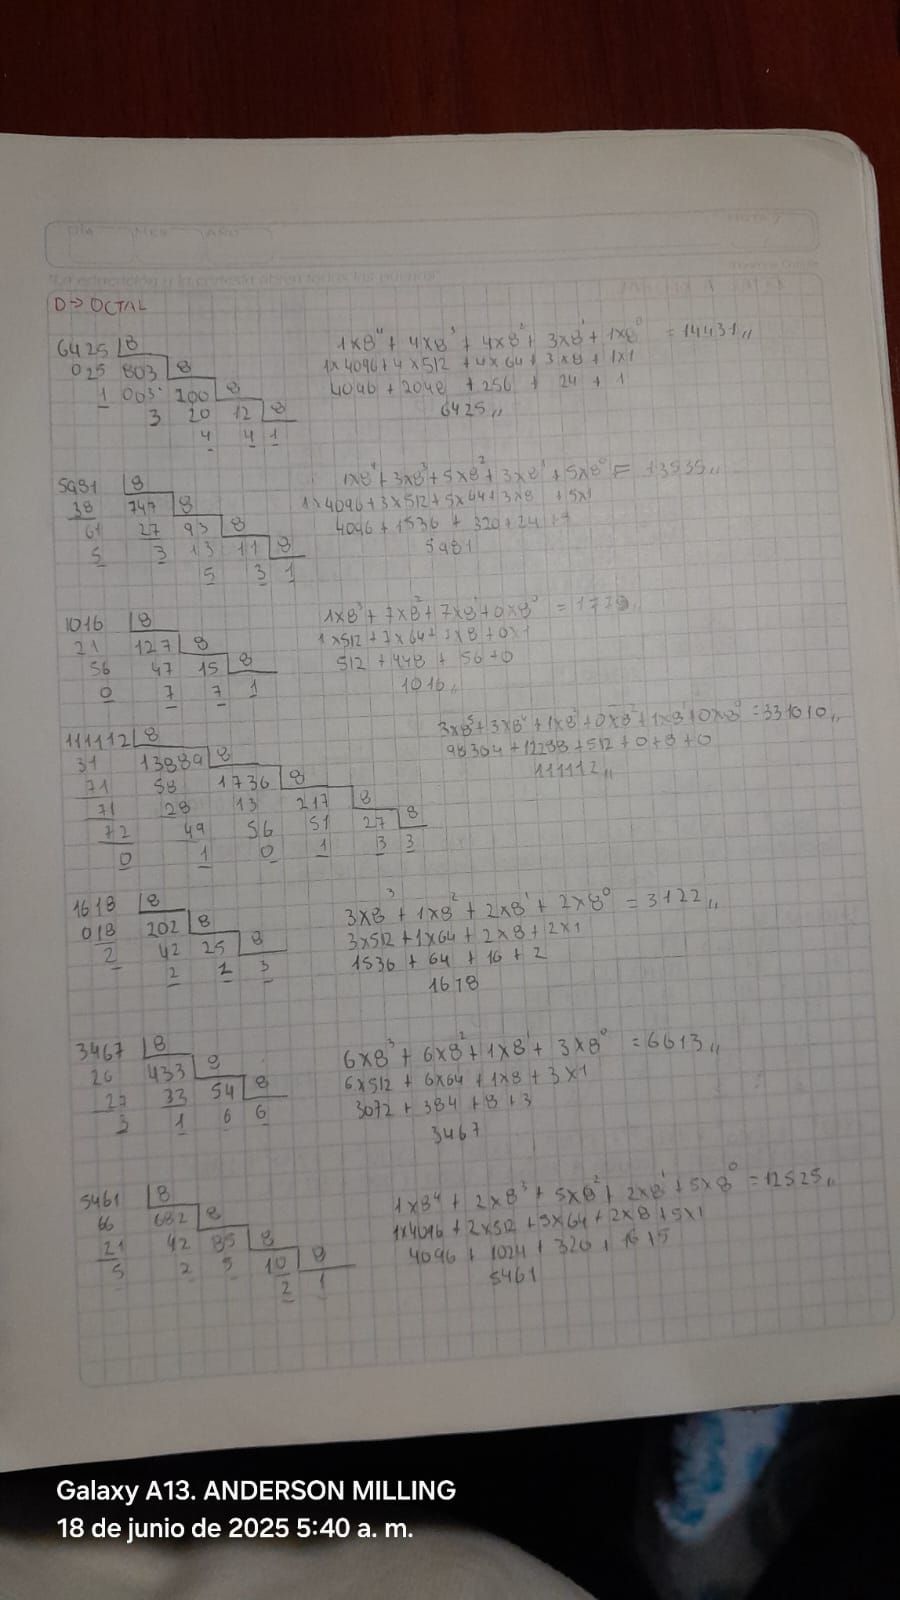 DÍA MES AÑO
D→ OCTAL
6425 |8
025 803 |8
1 003 200 |8
3 20 12 |8
4 4 1
1x8⁴ + 4x8³ + 4x8² + 3x8¹ + 1x8⁰ = 14431,,
1x4096+4x512 +4x64+ 3x8 + 1x1
4096 + 2048 + 256 + 24 + 1
6425,,
5981 |8
38 747 |8
61 27 93 |8
5 3 13 11 |8
5 3 1
1x8⁴ + 3x8³ + 5x8² + 3x8¹ + 5x8⁰ = 13535,,
1x4096+3x512+5x64+3x8 +5x1
4096 + 1536 + 320+24+
5981
1016 |8
21 127 |8
56 47 15 |8
0 7 7 1
1x8³ + 7x8² + 7x8¹ + 0x8⁰ = 1770
1x512 +7x64+7x8+0x1
512 + 448 + 56+0
1016,,
111112 |8
31 13889 |8
71 58 1736 |8
71 28 13 217 |8
72 49 56 51 27 |8
0 1 0 1 3 3
3x8⁵+3x8⁴+1x8³+0x8²+1x8+0x8⁰=331010,,
98304+12288+512+0+8+0
111112,,
1618 |8
018 202 |8
2 42 25 |8
2 1 3
3x8³ + 1x8² + 2x8¹ + 2x8⁰ = 3122,,
3x512+1x64+2x8+2x1
1536 + 64 + 16 + 2
1618
3467 |8
26 433 |8
27 33 54 |8
3 1 6 6
6x8³ + 6x8² + 1x8¹ + 3x8⁰ = 6613,,
6x512 + 6x64 + 1x8 + 3x1
3072 + 384 + 8 + 3
3467
5461 |8
66 682 |8
21 42 85 |8
5 2 5 10 |8
2 1
1x8⁴ + 2x8³ + 5x8² + 2x8¹ + 5x8⁰ = 12525,,
1x4096 + 2x512 + 5x64 + 2x8 + 5x1
4096 + 1024 + 320 + 16+5
5461
Galaxy A13. ANDERSON MILLING
18 de junio de 2025 5:40 a. m.